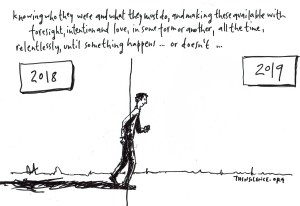 knowing who they were and what they must do, and making these available with
foresight, intention and love, in some form or another, all the time,
relentlessly, until something happens ... or doesn't ...
2018
2019